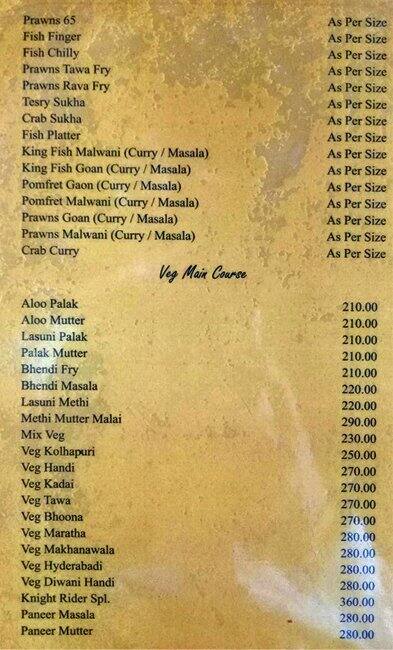 Prawns 65 As Per Size
Fish Finger As Per Size
Fish Chilly As Per Size
Prawns Tawa Fry As Per Size
Prawns Rava Fry As Per Size
Tesry Sukha As Per Size
Crab Sukha As Per Size
Fish Platter As Per Size
King Fish Malwani (Curry / Masala) As Per Size
King Fish Goan (Curry / Masala) As Per Size
Pomfret Gaon (Curry / Masala) As Per Size
Pomfret Malwani (Curry / Masala) As Per Size
Prawns Goan (Curry / Masala) As Per Size
Prawns Malwani (Curry / Masala) As Per Size
Crab Curry As Per Size
Veg Main Course
Aloo Palak 210.00
Aloo Mutter 210.00
Lasuni Palak 210.00
Palak Mutter 210.00
Bhendi Fry 210.00
Bhendi Masala 220.00
Lasuni Methi 220.00
Methi Mutter Malai 290.00
Mix Veg 230.00
Veg Kolhapuri 250.00
Veg Handi 270.00
Veg Kadai 270.00
Veg Tawa 270.00
Veg Bhoona 270.00
Veg Maratha 280.00
Veg Makhanawala 280.00
Veg Hyderabadi 280.00
Veg Diwani Handi 280.00
Knight Rider Spl. 360.00
Paneer Masala 280.00
Paneer Mutter 280.00